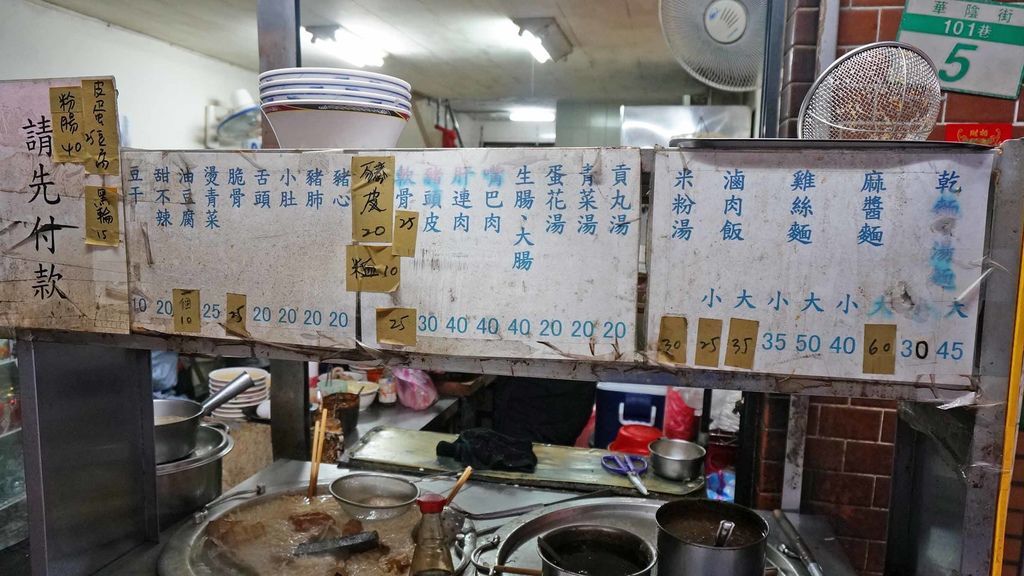 華陰街
101巷
5
請先付款
粉腸40
皮蛋豆腐25
黑輪15
豆干 10
甜不辣 20
油豆腐 個10
燙青菜 25
脆骨 25
舌頭 20
小肚 20
豬肺 20
豬心 20
豬皮 20
米血 10
軟骨 25
豬頭皮 30
肝連肉 40
嘴巴肉 40
生腸、大腸 40
蛋花湯 20
青菜湯 20
貢丸湯 20
米粉湯 30
滷肉飯 小 25 大 35
雞絲麵 小 35 大 50
麻醬麵 小 40 大 60
乾麵 湯麵 30 大 45